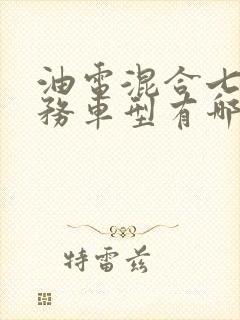 油電混合七
務車型有哪
特雷茲